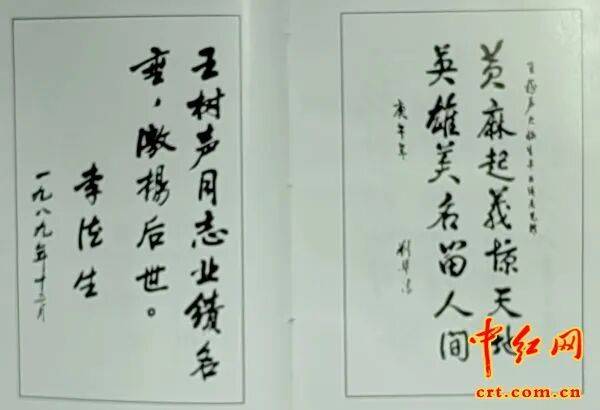 王树声同志业绩名
垂，激揚后世。
李德生
一九八九年十二月
王树声大将生平
黄麻起義惊天地
英雄美名留人间
庚午年
刘华清
中红网
crt.com.cn